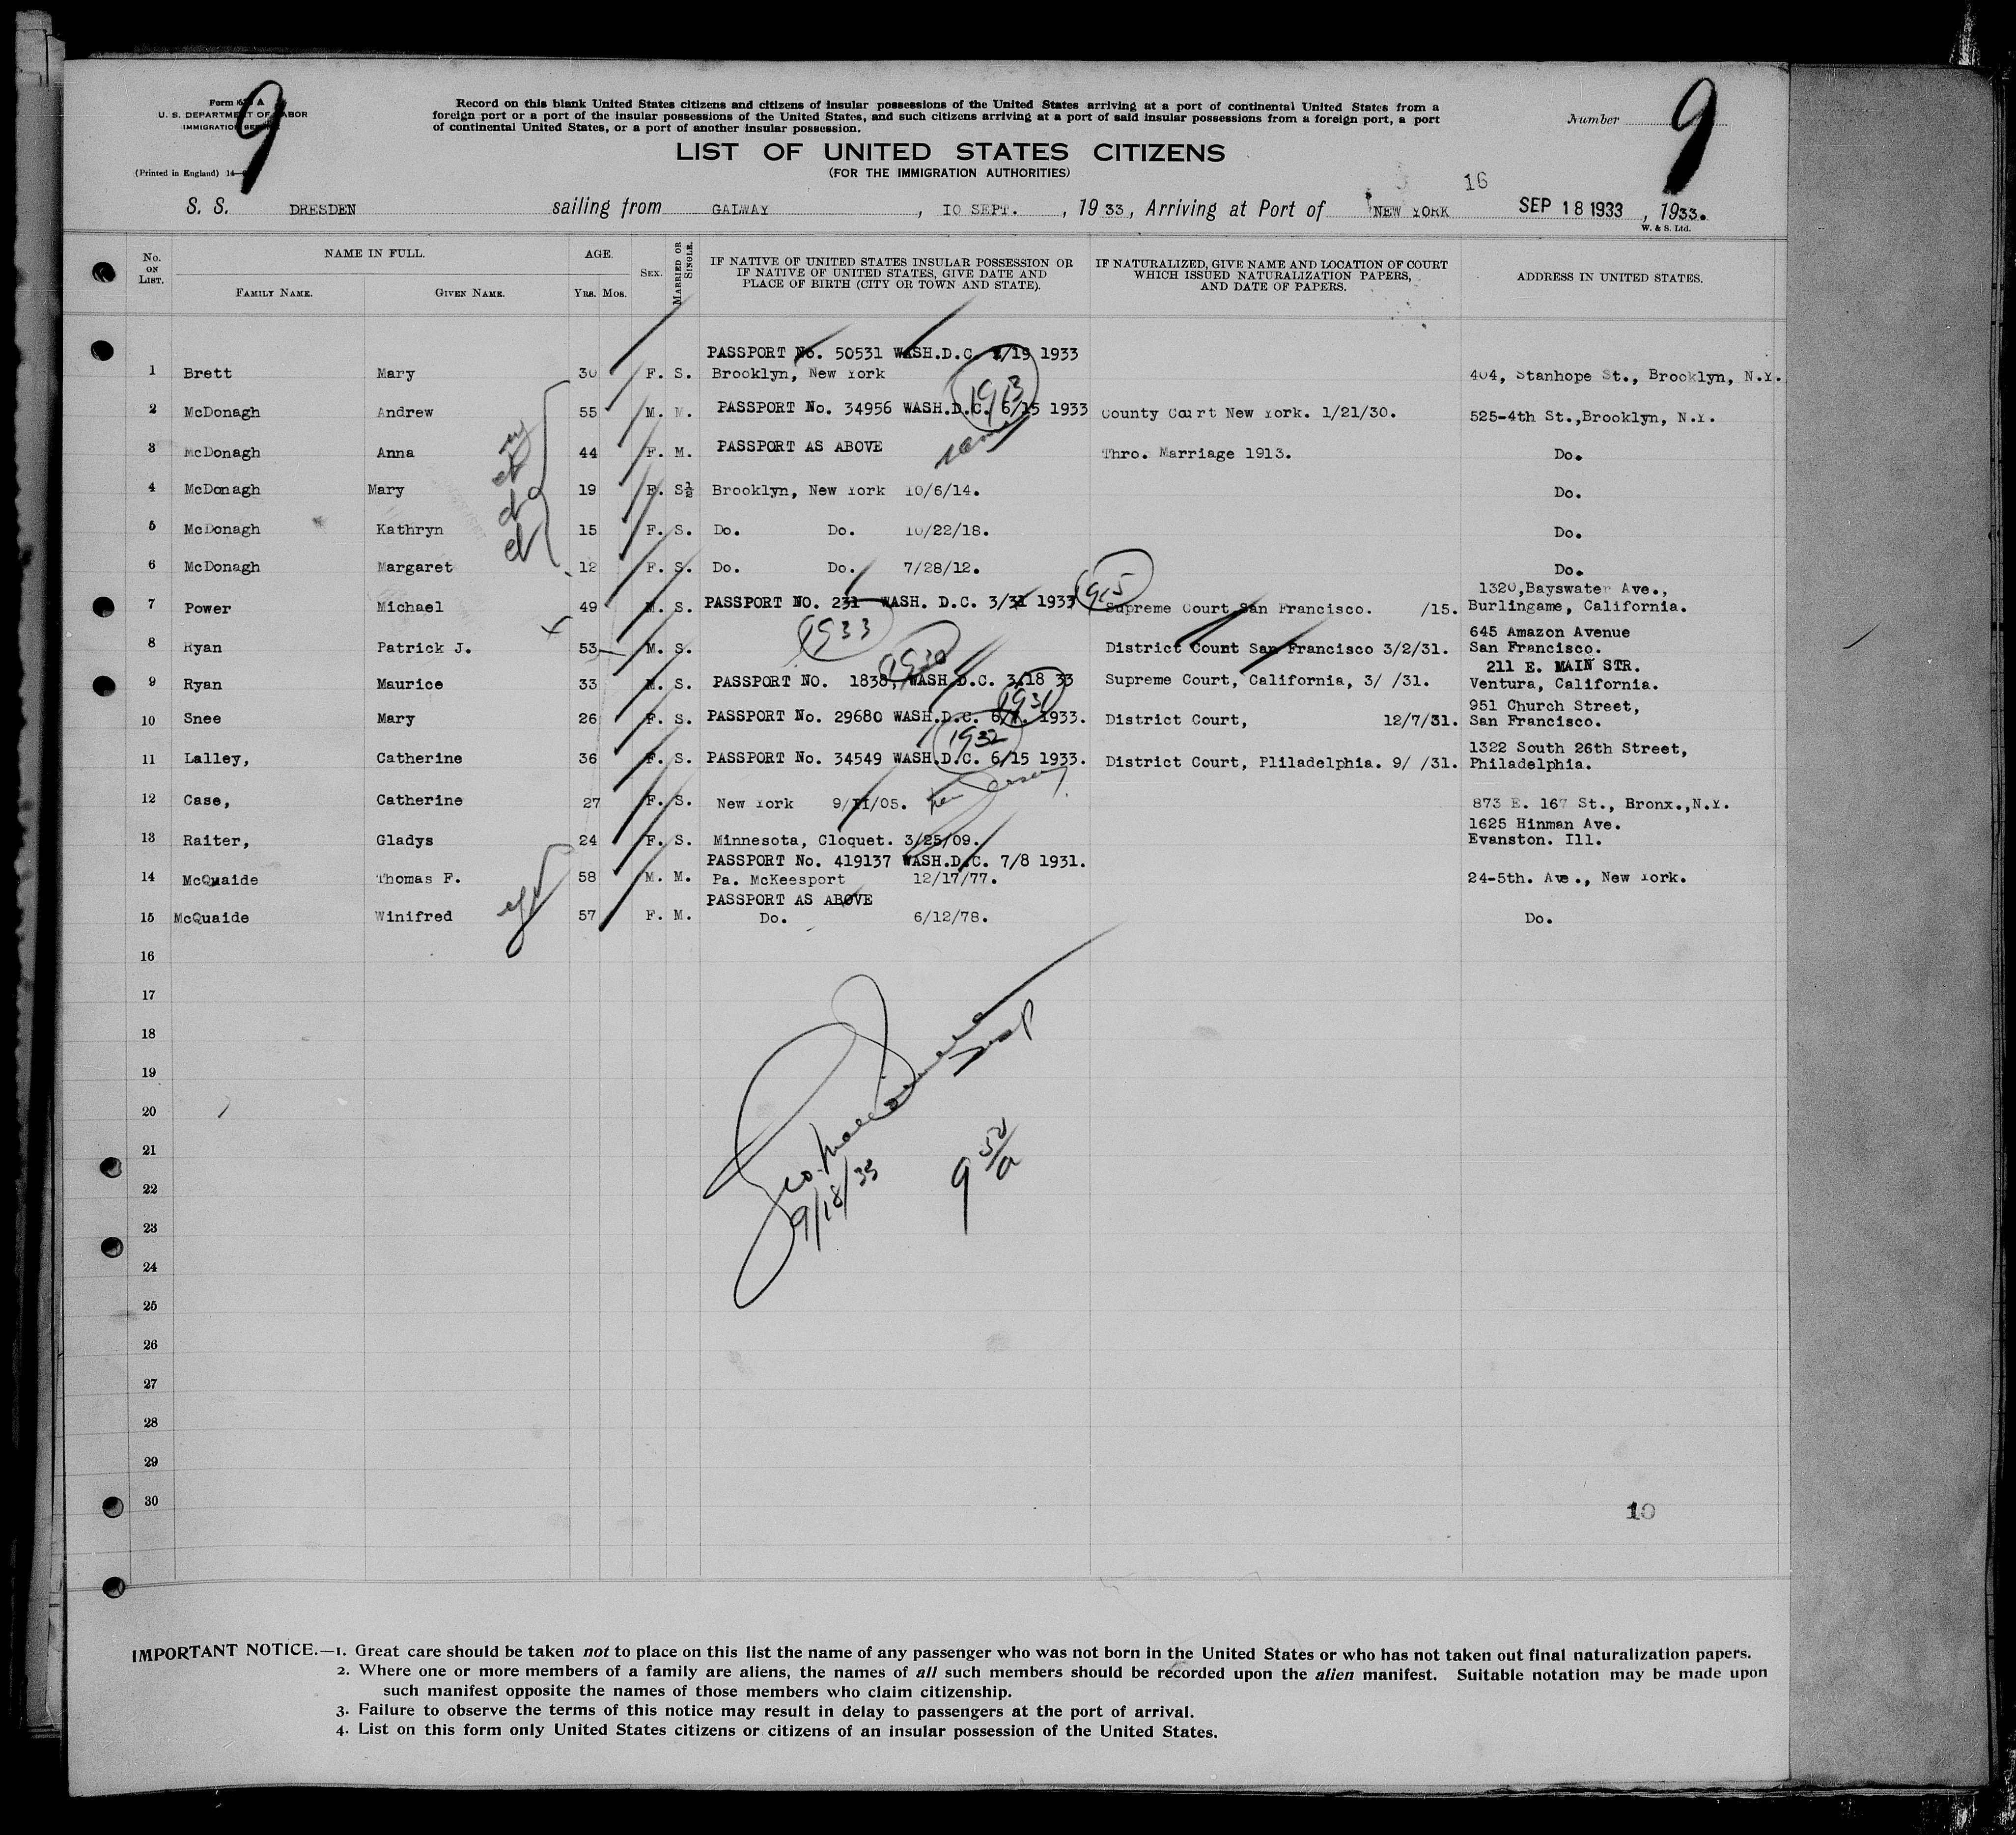 Form 630 A
U. S. DEPARTMENT OF LABOR
IMMIGRATION SERVICE
(Printed in England) 14—
9
Record on this blank United States citizens and citizens of insular possessions of the United States arriving at a port of continental United States from a
foreign port or a port of the insular possessions of the United States, and such citizens arriving at a port of said insular possessions from a foreign port, a port
of continental United States, or a port of another insular possession.
Number 9
LIST OF UNITED STATES CITIZENS
(FOR THE IMMIGRATION AUTHORITIES)
16
S. S. DRESDEN sailing from GALWAY, 10 SEPT., 1933, Arriving at Port of NEW YORK SEP 18 1933, 1933.
W. & S. Ltd.
No. ON LIST. NAME IN FULL. FAMILY NAME. GIVEN NAME. AGE. YRS. MOS. SEX. MARRIED OR SINGLE. IF NATIVE OF UNITED STATES INSULAR POSSESSION OR IF NATIVE OF UNITED STATES, GIVE DATE AND PLACE OF BIRTH (CITY OR TOWN AND STATE). IF NATURALIZED, GIVE NAME AND LOCATION OF COURT WHICH ISSUED NATURALIZATION PAPERS, AND DATE OF PAPERS. ADDRESS IN UNITED STATES.
PASSPORT No. 50531 WASH.D.C. /19 1933
1 Brett Mary 30 F. S. Brooklyn, New York 404, Stanhope St., Brooklyn, N.Y.
1913
2 McDonagh Andrew 55 M. M. PASSPORT No. 34956 WASH.D.C. 6/15 1933 County Court New York. 1/21/30. 525-4th St.,Brooklyn, N.Y.
same
3 McDonagh Anna 44 F. M. PASSPORT AS ABOVE Thro. Marriage 1913. Do.
4 McDonagh Mary 19 F. S½ Brooklyn, New York 10/6/14. Do.
5 McDonagh Kathryn 15 F. S. Do. Do. 10/22/18. Do.
6 McDonagh Margaret 12 F. S. Do. Do. 7/28/12. Do.
1915
1320,Bayswater Ave.,
7 Power Michael 49 M. S. PASSPORT NO. 231 WASH. D.C. 3/31 1933 Supreme Court San Francisco. /15. Burlingame, California.
1933
645 Amazon Avenue
8 Ryan Patrick J. 53 M. S. District Count San Francisco 3/2/31. San Francisco.
1930
211 E. MAIN STR.
9 Ryan Maurice 33 M. S. PASSPORT NO. 1838, WASH.D.C. 3/18 33 Supreme Court, California, 3/ /31. Ventura, California.
1931
951 Church Street,
10 Snee Mary 26 F. S. PASSPORT No. 29680 WASH.D.C. 6/ 1933. District Court, 12/7/31. San Francisco.
1932
1322 South 26th Street,
11 Lalley, Catherine 36 F. S. PASSPORT No. 34549 WASH.D.C. 6/15 1933. District Court, Pliladelphia. 9/ /31. Philadelphia.
12 Case, Catherine 27 F. S. New York 9/11/05. New Jersey 873 E. 167 St., Bronx.,N.Y.
1625 Hinman Ave.
13 Raiter, Gladys 24 F. S. Minnesota, Cloquet. 3/25/09. Evanston. Ill.
PASSPORT No. 419137 WASH.D.C. 7/8 1931.
14 McQuaide Thomas F. 58 M. M. Pa. McKeesport 12/17/77. 24-5th. Ave., New York.
PASSPORT AS ABOVE
15 McQuaide Winifred 57 F. M. Do. 6/12/78. Do.
16
17
18
19
20
21
22
23
24
25
26
27
28
29
30
Insp
9/18/33
9 50/a
10
IMPORTANT NOTICE.—1. Great care should be taken not to place on this list the name of any passenger who was not born in the United States or who has not taken out final naturalization papers.
2. Where one or more members of a family are aliens, the names of all such members should be recorded upon the alien manifest. Suitable notation may be made upon
such manifest opposite the names of those members who claim citizenship.
3. Failure to observe the terms of this notice may result in delay to passengers at the port of arrival.
4. List on this form only United States citizens or citizens of an insular possession of the United States.